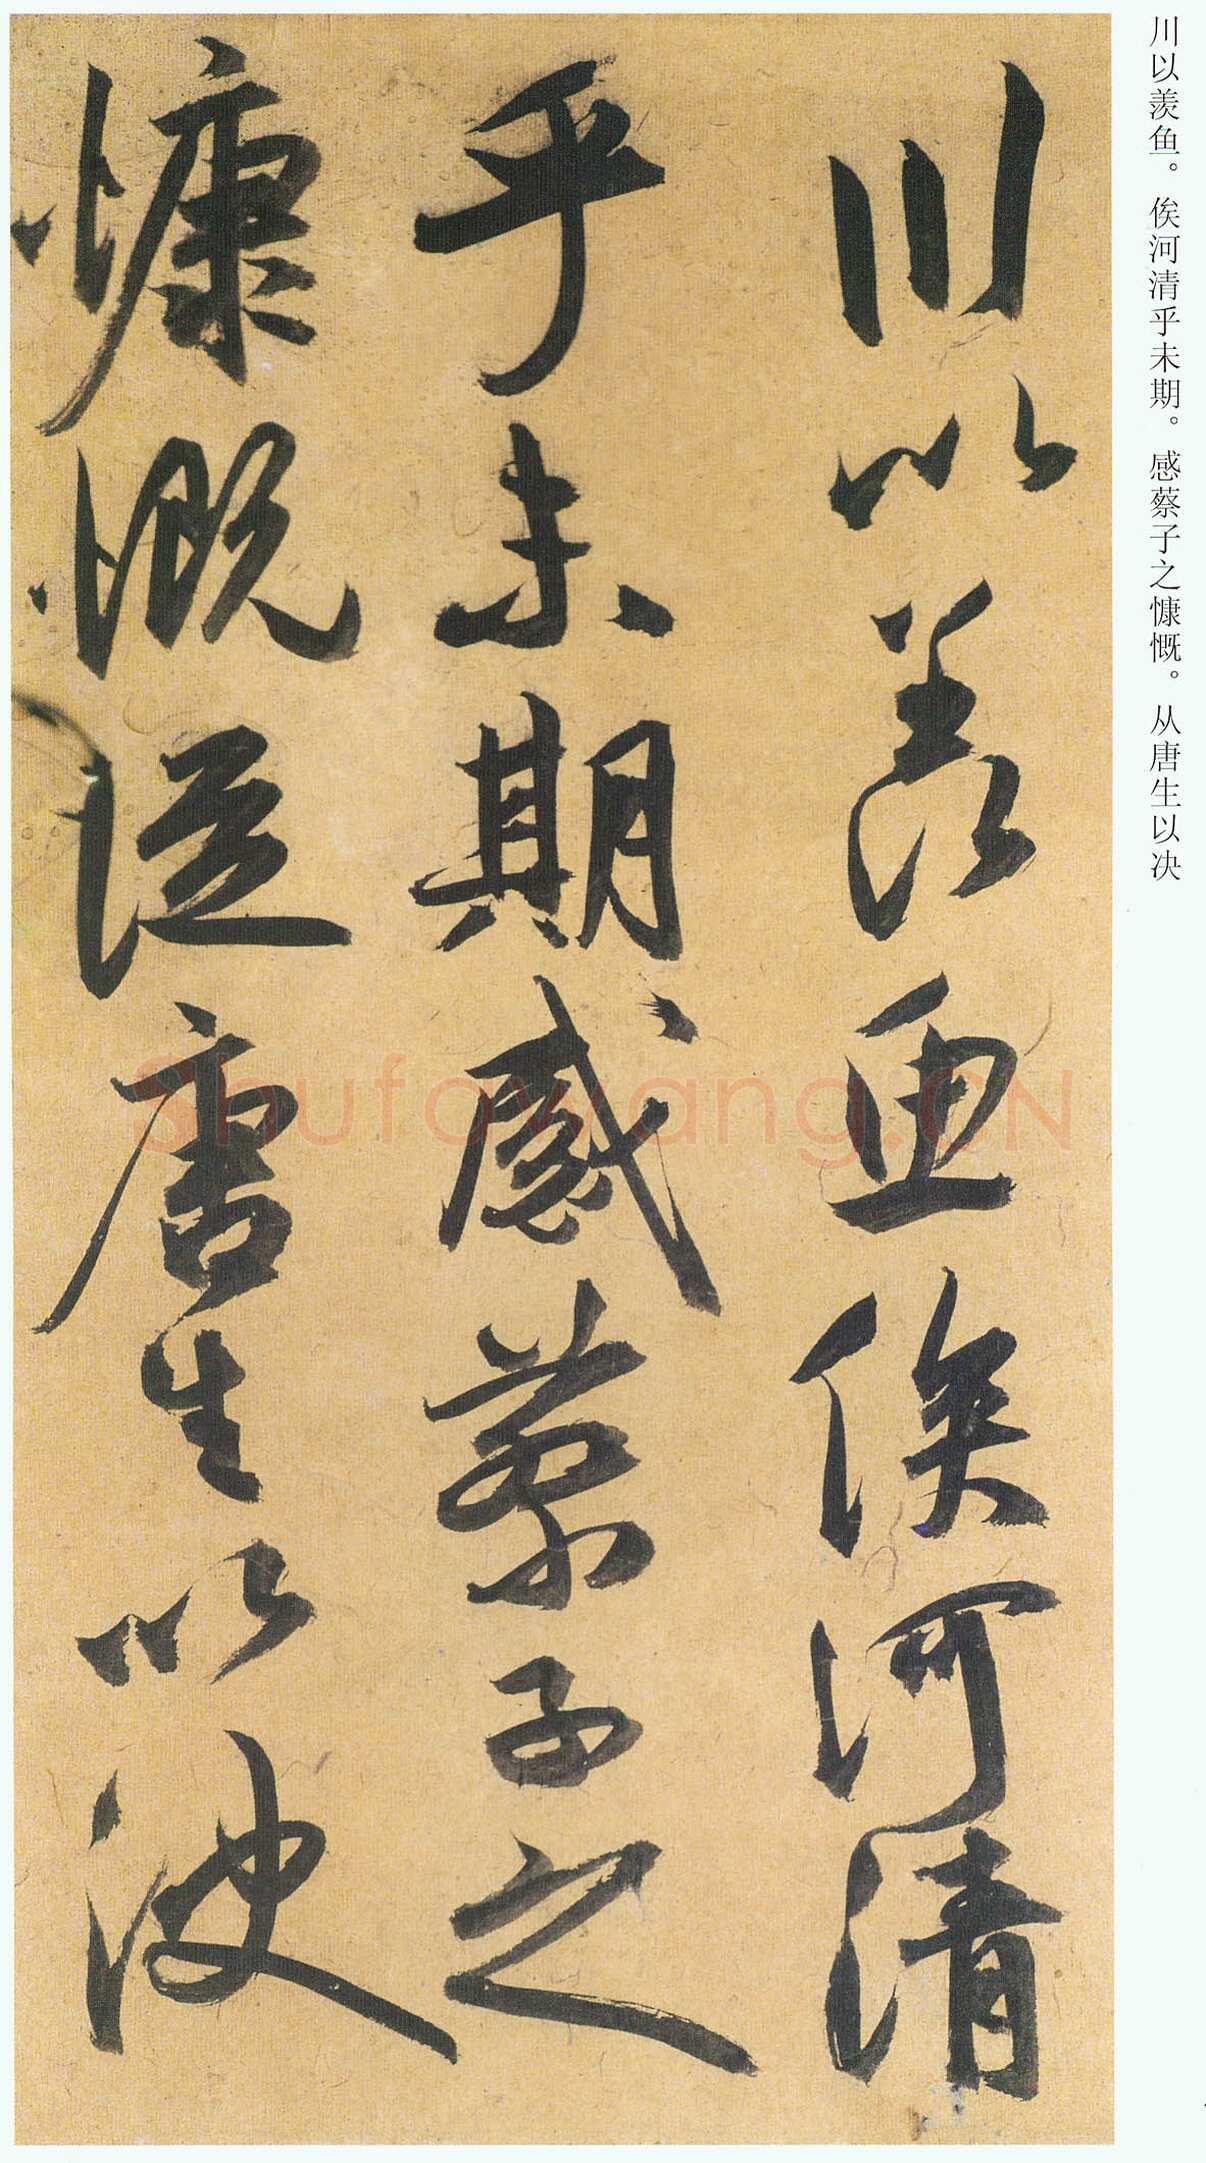 川以羡鱼。俟河清乎未期。感蔡子之慷慨。从唐生以决
川以羨魚俟河清
乎未期感蔡子之
慷慨從唐生以決
Shufawang.CN